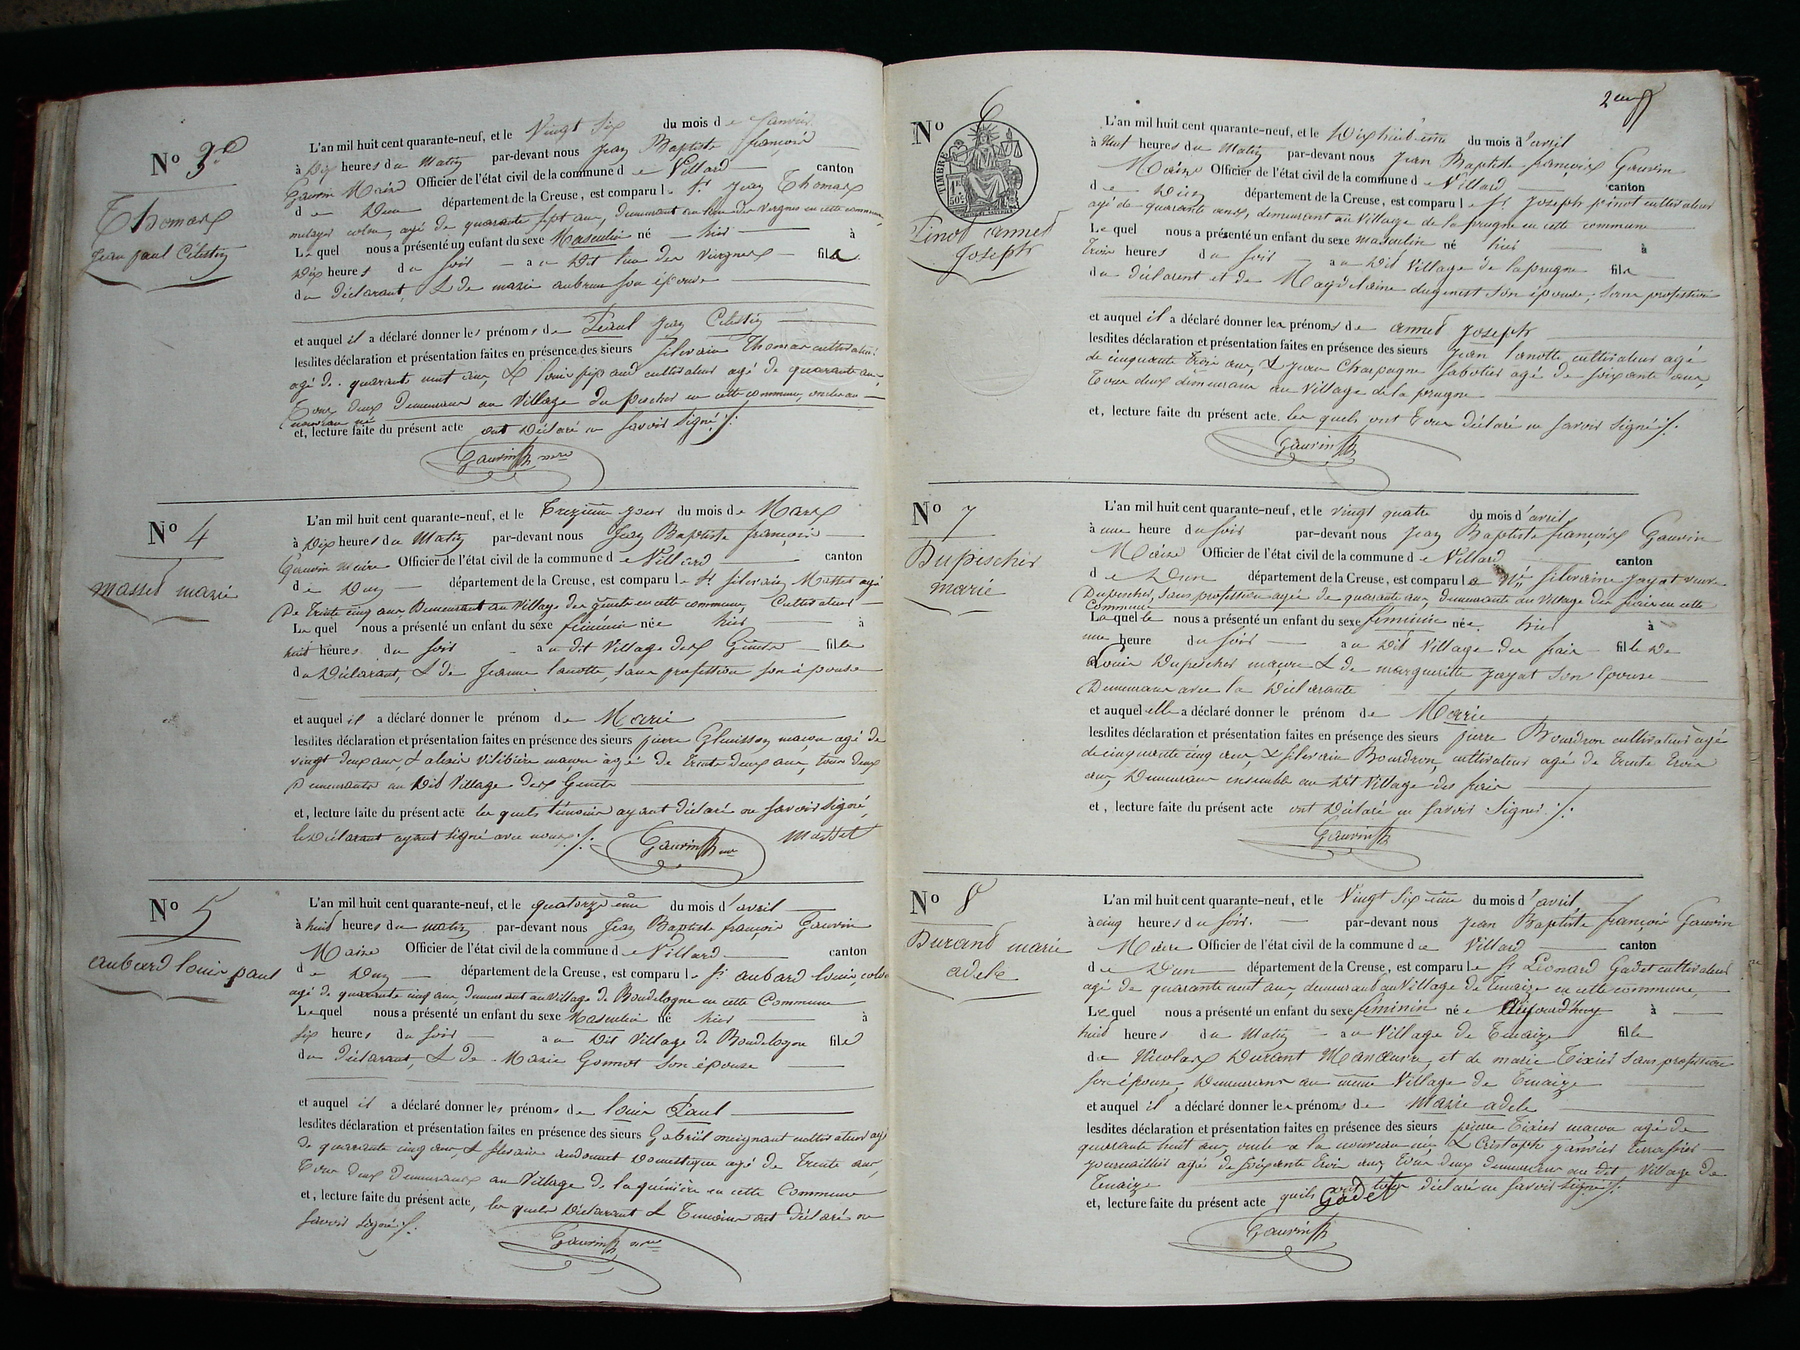 No 3e
Thomas
Jean paul Célestin
L'an mil huit cent quarante-neuf, et le Vingt Six du mois de Janvier
à Dix heures du Matin par-devant nous Jean Baptiste françois
Gauvin Maire Officier de l'état civil de la commune de Villard canton
de Dun département de la Creuse, est comparu le Sr Jean Thomas
métayer colon, agé de quarante sept ans, demeurant au lieu des Vergnes en cette commune,
Lequel nous a présenté un enfant du sexe Masculin né hier à
Dix heures du Soir au Dit lieu des Vergnes fils
du Déclarant, & de marie aubrun son épouse
et auquel il a déclaré donner les prénoms de Paul Jean Célestin
lesdites déclaration et présentation faites en présence des sieurs Silvain Thomas cultivateur
agé de quarante huit ans, & louis cultivateur agé de quarante ans,
Tous deux Demeurant au Village du pischer en cette commune, oncles au
nouveau né
et, lecture faite du présent acte ont Déclaré ne savoir signé ./.
Gauvin mre
No 4
masset marie
L'an mil huit cent quarante-neuf, et le Treizieme jour du mois de Mars
à Dix heures du Matin par-devant nous Jean Baptiste françois
Gauvin maire Officier de l'état civil de la commune de Villard canton
de Dun département de la Creuse, est comparu le Sr Silvain Masset agé
De Trente cinq ans Demeurant au Village des genets en cette commune, Cultivateur
Lequel nous a présenté un enfant du sexe féminin née hier à
huit heures du soir au dit Village des Genets fille
du Déclarant, & de Jeanne lanotte, sans profession son épouse
et auquel il a déclaré donner le prénom de Marie
lesdites déclaration et présentation faites en présence des sieurs pierre Glenisson maçon agé de
vingt deux ans, & alexis vilibière maçon agé de trente deux ans, tous deux
Demeurants au Dit Village des Genets
et, lecture faite du présent acte les quels témoins ayant déclaré ne savoir signé,
le Déclarant ayant signé avec nous ./. Gauvin mre Masset
No 5
aubard louis paul
L'an mil huit cent quarante-neuf, et le quatorzieme du mois d'avril
à huit heures du matin par-devant nous Jean Baptiste françois Gauvin
Maire Officier de l'état civil de la commune de Villard canton
de Dun département de la Creuse, est comparu le Sr aubard louis, colon
agé de quarante cinq ans, demeurant au Village de Boudelogne en cette Commune
Lequel nous a présenté un enfant du sexe Masculin né hier à
six heures du soir au Dit Village de Boudelogne fils
du déclarant, & de Marie Gomot son épouse
et auquel il a déclaré donner les prénoms de louis Paul
lesdites déclaration et présentation faites en présence des sieurs Gabriël cultivateur agé
de quarante cinq ans, & Silvain andouet Domestique agé de Trente ans,
Tous deux Demeurants au Village de la quénière en cette Commune
et, lecture faite du présent acte, les quels Déclarant & Temoins ont déclaré ne
savoir signé ./.
Gauvin mre
2eme
No 6
TIMBRE
1f 50c
Pinot amet
Joseph
L'an mil huit cent quarante-neuf, et le Dix huitieme du mois d'avril
à Neuf heures du Matin par-devant nous Jean Baptiste françois Gauvin
Maire Officier de l'état civil de la commune de Villard canton
de Dun département de la Creuse, est comparu le Sr Joseph pinot cultivateur
agé de quarante ans, demeurant au Village de la prugne en cette commune
Lequel nous a présenté un enfant du sexe masculin né hier à
Trois heures du soir au Dit Village de laprugne fils
du déclarent et de Magdelaine dugenest son épouse, sans profession
et auquel il a déclaré donner les prénoms de amet Joseph
lesdites déclaration et présentation faites en présence des sieurs Jean lanotte cultivateur agé
de cinquante Trois ans, & Jean Chapagne sabotier agé de soixante ans,
Tous deux demeurant au Village de la prugne
et, lecture faite du présent acte les quels ont Tous déclaré ne savoir signé ./.
Gauvin
No 7
Dupischer
marie
L'an mil huit cent quarante-neuf, et le vingt quatre du mois d'avril
à une heure du soir par-devant nous Jean Baptiste françois Gauvin
Maire Officier de l'état civil de la commune de Villard canton
de Dun département de la Creuse, est comparu la Silvaine jayat veuve
Dupischer, sans profession agée de quarante ans, demeurante au Village des frais en cette
Commune
Laquelle nous a présenté un enfant du sexe féminin née hier à
une heure du soir au Dit Village des frais fille De
Louis Dupischer maçon & de marguerite jayat son épouse
Demeurant avec la Déclarante
et auquel elle a déclaré donner le prénom de Marie
lesdites déclaration et présentation faites en présence des sieurs pierre Bourdron cultivateur agé
de cinquante cinq ans, & silvain Bourdron, cultivateur agé de trente trois
ans, Demeurant ensemble au Dit Village des frais
et, lecture faite du présent acte ont Déclaré ne savoir signer ./.
Gauvin
No 8
Durand marie
adele
L'an mil huit cent quarante-neuf, et le Vingt Sixieme du mois d'avril
à cinq heures du soir. par-devant nous Jean Baptiste françois Gauvin
Maire Officier de l'état civil de la commune de Villard canton
de Dun département de la Creuse, est comparu le Sr Léonard Gadet cultivateur
agé de quarante neuf ans, demeurant au Village de Tenaize en cette commune,
Lequel nous a présenté un enfant du sexe féminin né Aujourd'huy à
huit heures du Matin au Village de Tenaize fille
de Nicolas Durant Manœuvre, et de marie Tixier sans profession
son épouse, Demeurans au meme Village de Tenaize
et auquel il a déclaré donner les prénoms de Marie adele
lesdites déclaration et présentation faites en présence des sieurs pierre Tixier maçon agé de
quarante huit ans, oncle a la nouveau née, & Cristophe janvier Terrassier
journaillier agé de soixante trois ans, Tous deux demeurans au dit Village de
Tenaize
et, lecture faite du présent acte quils ont tous déclaré ne savoir signé ./.
Gadet
Gauvin